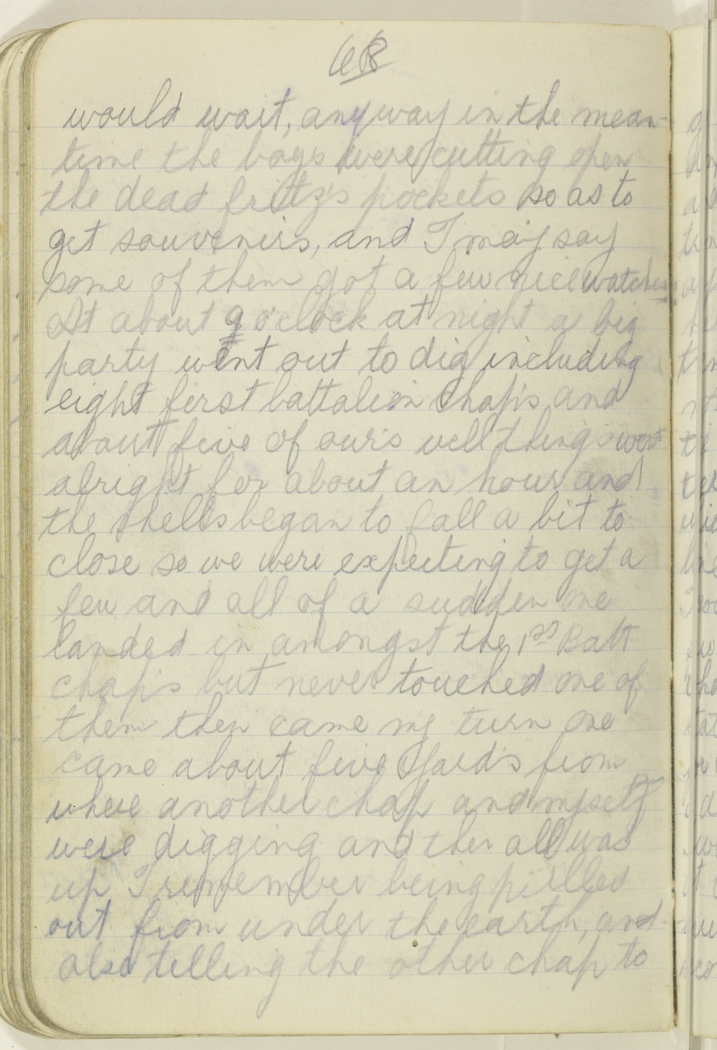 68
would wait, anyway in the mean-
time the boys were cutting open
the dead fritz's pockets so as to
get souvenirs, and I may say
some of them got a few nice watches
At about 9 o'clock at night a big
party went out to dig including
eight first battalion chap's, and
about five of our's well things went
alright for about an hour and
the shells began to fall a bit to
close so we were expecting to get a
few and all of a sudden one
landed in amongst the 1st Batt
chap's but never touched one of
them then came my turn one
came about five yard's from
where another chap and myself
were digging and then all was
up I remember being pulled
out from under the earth, and
also telling the other chap to